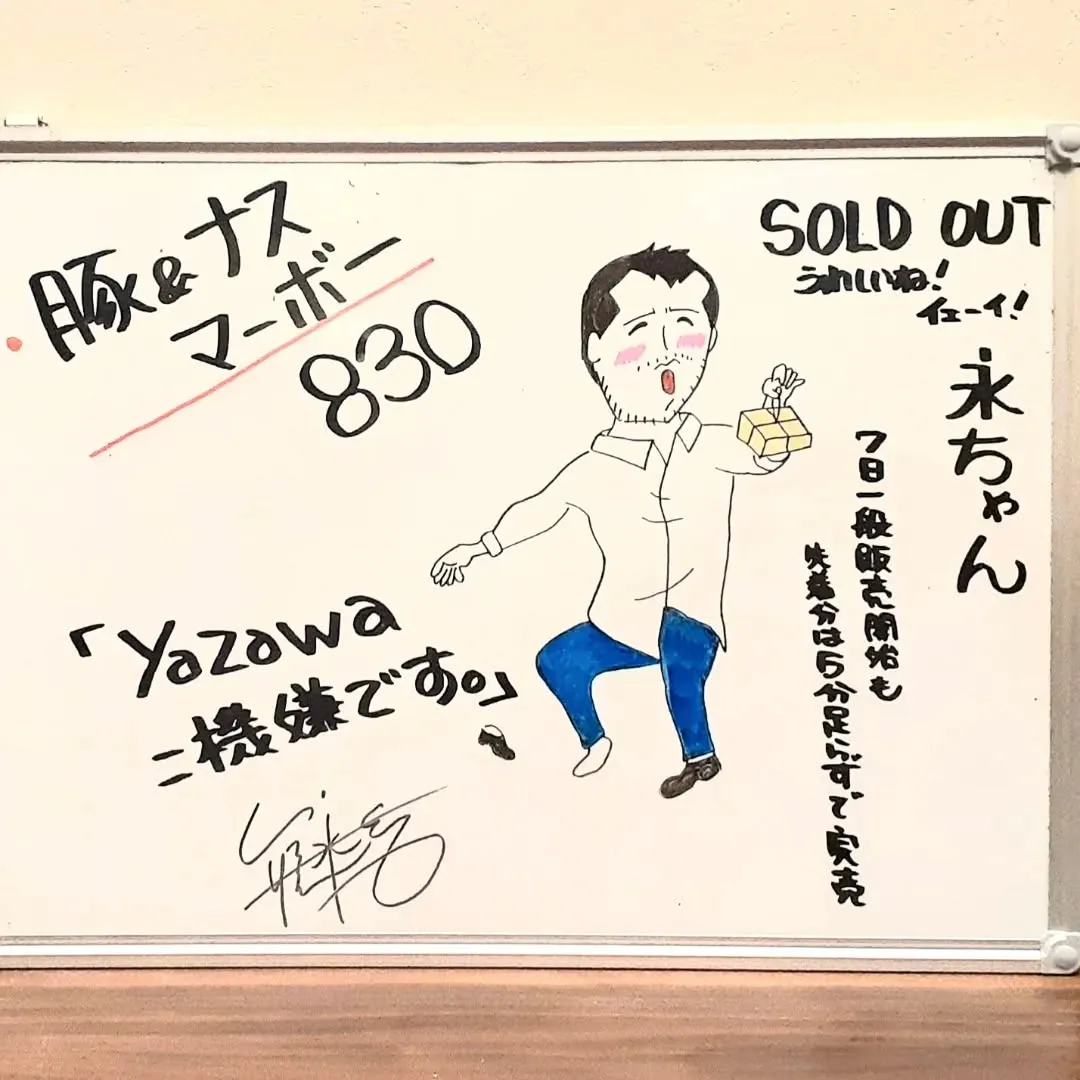 豚&ナス
マーボー
830
SOLD OUT
うれしいね!
イェーイ!
永ちゃん
7日一般販売開始も
先着分は5分足らずで完売
「Yazawa
ご機嫌です。」